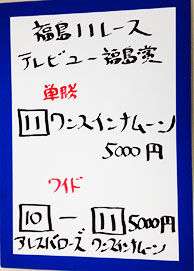 福島11レース
テレビュー福島賞
単勝
11 ワンスインナムーン
5000円
ワイド
10 ー 11 5000円
アレスバローズ ワンスインナムーン